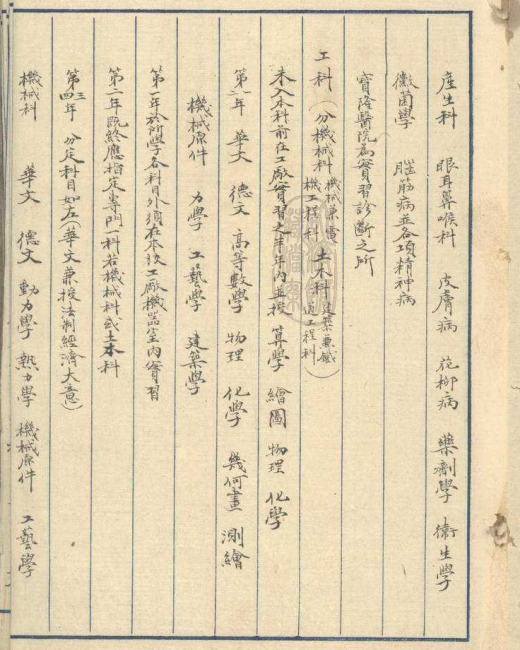 產生科 眼耳鼻喉科 皮膚病 花柳病 藥劑學 衛生學
黴菌學 腦筋病並各項精神病
寶隆醫院為實習診斷之所
工科（分機械科 機械兼電機工程科 土木科 建築兼鐵道工程科）
未入本科前在工廠實習之半年內並授 算學 繪圖 物理 化學
第一年 華文 德文 高等數學 物理 化學 幾何畫 測繪
機械原件 力學 工藝學 建築學
第一年於所學各科目外須在本校工廠機器室內實習
第二年既終應指定專門一科若機械科或土木科
第三四年 分定科目如左（華文兼授法制經濟大意）
機械科 華文 德文 動力學 熱力學 機械原件 工藝學